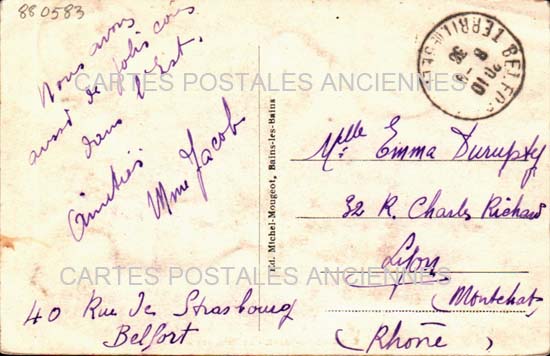 880583
Nous avons
aussi de jolis coins
dans l'Est.
Amitiés
Mme Jacob
40 Rue de Strasbourg
Belfort
Ed. Michel-Mougeot, Bains-les-Bains
BELFORT
Mlle Emma Durupty
32 R. Charles Richard
Lyon
(Montchat)
(Rhône)
CARTES POSTALES ANCIENNES
CARTES POSTALES ANCIENNES